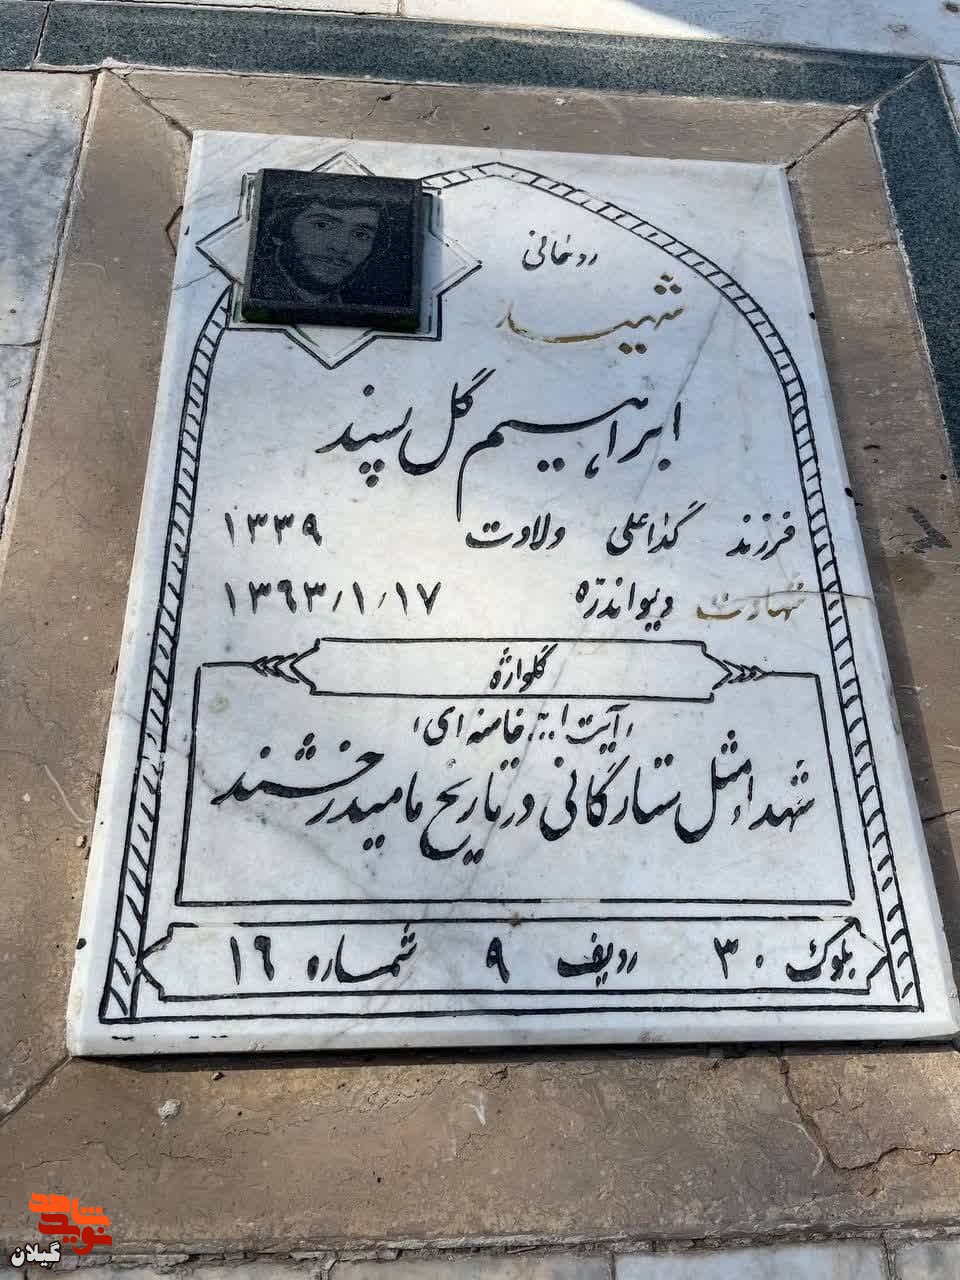 روحانی
شهید
ابراهیم گل سپند
فرزند گداعلی ولادت ۱۳۳۹
شهادت دیواندره ۱۳۶۳/۱/۱۷
گلواژه
(آیت ا... خامنه ای)
شهدا مثل ستارگانی در تاریخ ما میدرخشند
بلوک ۳۰ ردیف ۹ شماره ۱۶
نوید شاهد
گیلان